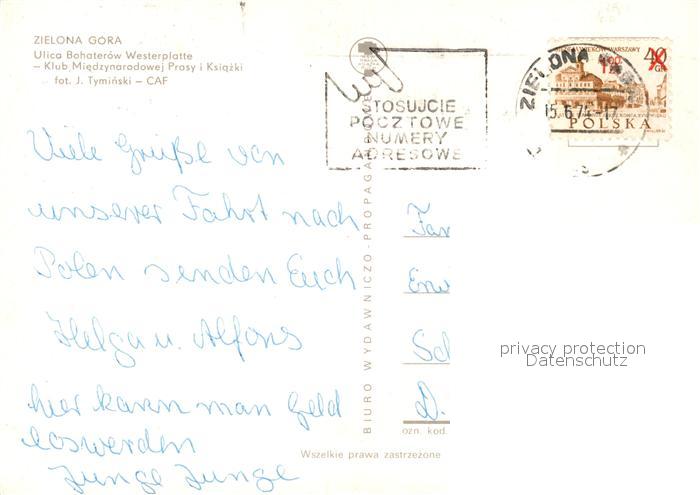 ZIELONA GÓRA
Ulica Bohaterów Westerplatte
— Klub Międzynarodowej Prasy i Książki
fot. J. Tymiński — CAF
STOSUJCIE
POCZTOWE
NUMERY
ADRESOWE
ZIELONA
15.6.74-17
40
GR
POLSKA
Viele Grüße von
unserer Fahrt nach
Polen senden Euch
Helga u. Alfons
hier kann man Geld
loswerden
Junge Junge
BIURO WYDAWNICZO-PROPAGANDOWE
Fam
Sch
D.
ozn. kod.
Wszelkie prawa zastrzeżone
privacy protection
Datenschutz